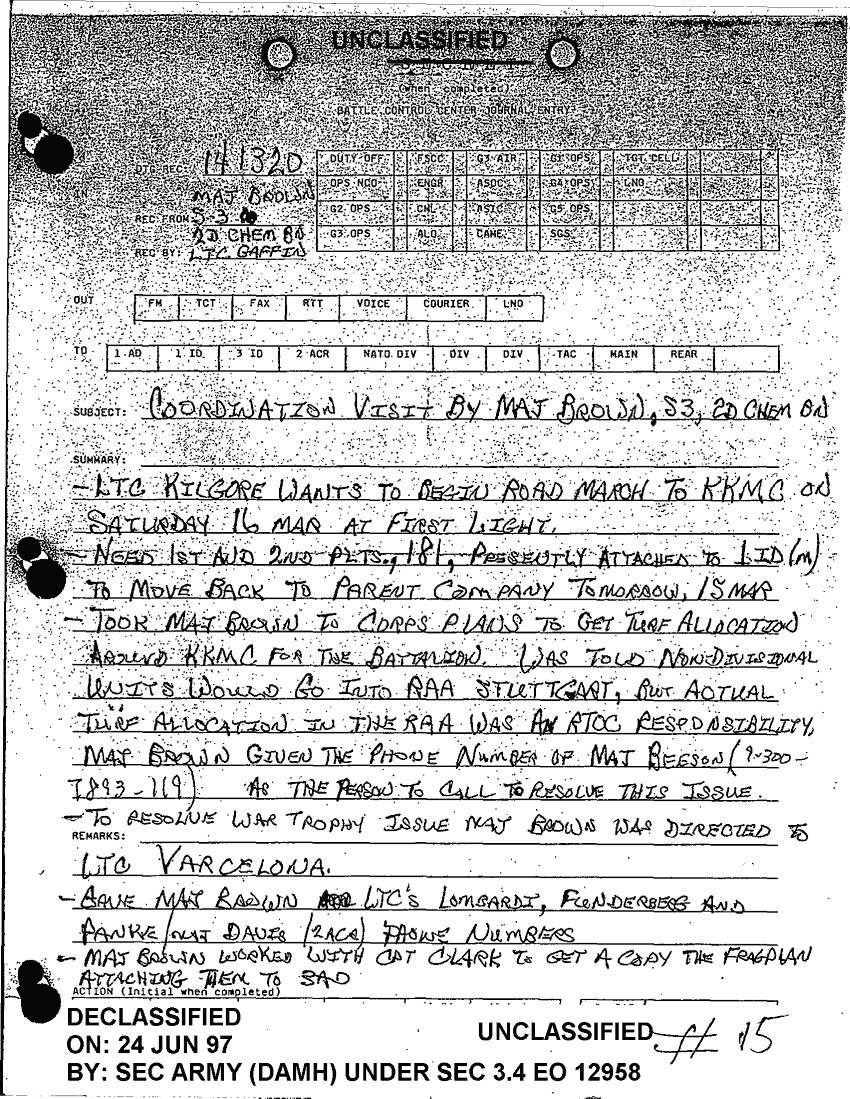 UNCLASSIFIED
(when completed)
BATTLE CONTROL CENTER JOURNAL ENTRY
DTG REC: 141320
IN MAJ BROWN
REC FROM: S-3
2D CHEM BN
REC BY: LTC GAFFIN
DUTY OFF FSCC G3 AIR G1 OPS TGT CELL
OPS NCO ENGR ASOC G4 OPS LNO
G2 OPS CML ASIC G5 OPS
G3 OPS ALO CAME SGS
OUT FM TCT FAX RTT VOICE COURIER LNO
TO 1 AD 1 ID 3 ID 2 ACR NATO DIV DIV DIV TAC MAIN REAR
SUBJECT: COORDINATION VISIT BY MAJ BROWN, S3, 2D CHEM BN
SUMMARY:
- LTC KILGORE WANTS TO BEGIN ROAD MARCH TO KKMC ON
SATURDAY 16 MAR AT FIRST LIGHT.
- NEED 1ST AND 2ND PLTS., 181, PRESENTLY ATTACHED TO 1 ID (M)
TO MOVE BACK TO PARENT COMPANY TOMORROW, 15 MAR
- TOOK MAJ BROWN TO CORPS PLANS TO GET TURF ALLOCATION
AROUND KKMC FOR THE BATTALION. WAS TOLD NON-DIVISIONAL
UNITS WOULD GO INTO RAA STUTTGART, BUT ACTUAL
TURF ALLOCATION IN THE RAA WAS AN RTOC RESPONSIBILITY,
MAJ BROWN GIVEN THE PHONE NUMBER OF MAJ BEESON (9-300-
7893-119) AS THE PERSON TO CALL TO RESOLVE THIS ISSUE.
- TO RESOLVE WAR TROPHY ISSUE MAJ BROWN WAS DIRECTED TO
REMARKS:
LTC VARCELONA.
- GAVE MAJ BROWN LTC'S LOMBARDI, FUNDERBERG AND
PANKE/MAJ DAVIS (2ACR) PHONE NUMBERS
- MAJ BROWN WORKED WITH CPT CLARK TO GET A COPY THE FRAGPLAN
ATTACHING THEM TO 3AD
ACTION (Initial when completed)
DECLASSIFIED
ON: 24 JUN 97
BY: SEC ARMY (DAMH) UNDER SEC 3.4 EO 12958
UNCLASSIFIED # 15